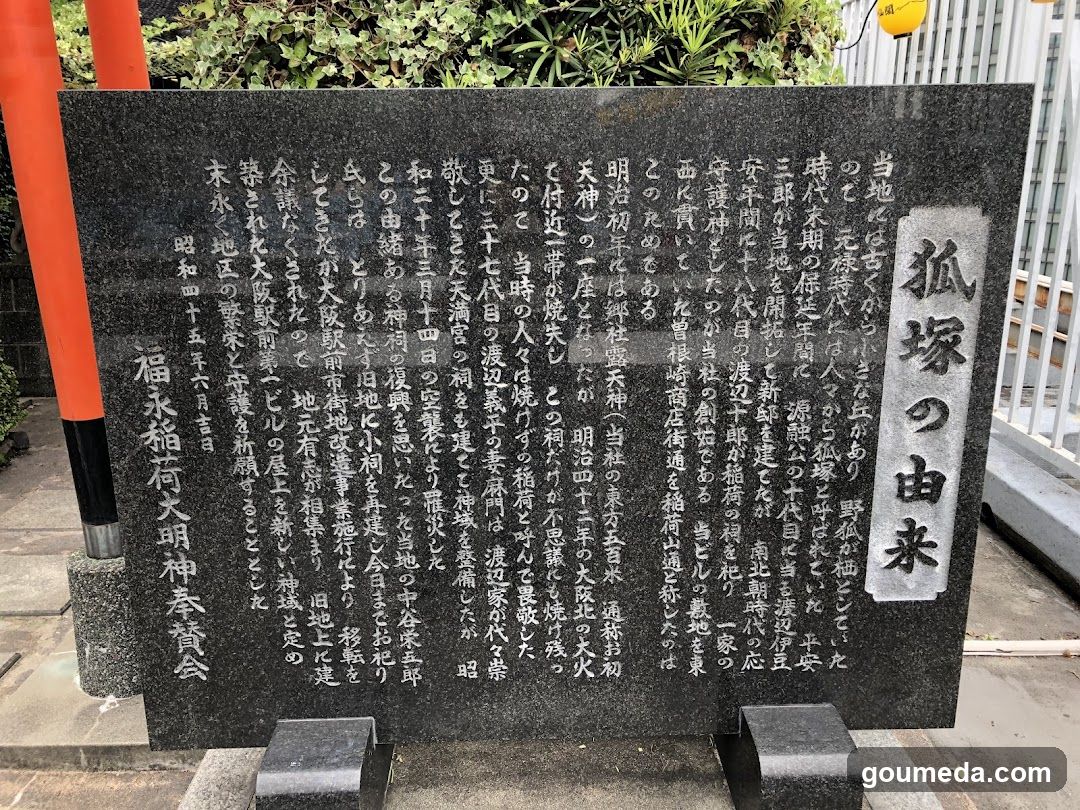 狐塚の由来
当地には古くから小さな丘があり 野狐が栖としていた
ので 元禄時代には人々から狐塚と呼ばれていた 平安
時代末期の保延年間に 源融公の十代目に当る渡辺伊豆
三郎が当地を開拓して新邸を建てたが 南北朝時代の応
安年間に十八代目の渡辺十郎が稲荷の祠を祀り 一家の
守護神としたのが当社の創始である 当ビルの敷地を東
西に貫いていた曽根崎商店街通を稲荷山通と称したのは
このためである
明治初年には郷社露天神(当社の東方五百米 通称お初
天神)の一座となったが 明治四十二年の大阪北の大火
で付近一帯が焼失し この祠だけが不思議にも焼け残っ
たので 当時の人々は焼けずの稲荷と呼んで畏敬した
更に三十七代目の渡辺義平の妻麻門は 渡辺家が代々崇
敬してきた天満宮の祠をも建てて神域を整備したが 昭
和二十年三月十四日の空襲により罹災した
この由緒ある神祠の復興を思いたった当地の中谷栄五郎
氏らは とりあえず旧地に小祠を再建し今日までお祀り
してきたが大阪駅前市街地改造事業施行により 移転を
余議なくされたので 地元有志が相集まり 旧地上に建
築された大阪駅前第一ビルの屋上を新しい神域と定め
末永く地区の繁栄と守護を祈願することとした
昭和四十五年六月吉日
福永稲荷大明神奉賛会
goumeda.com